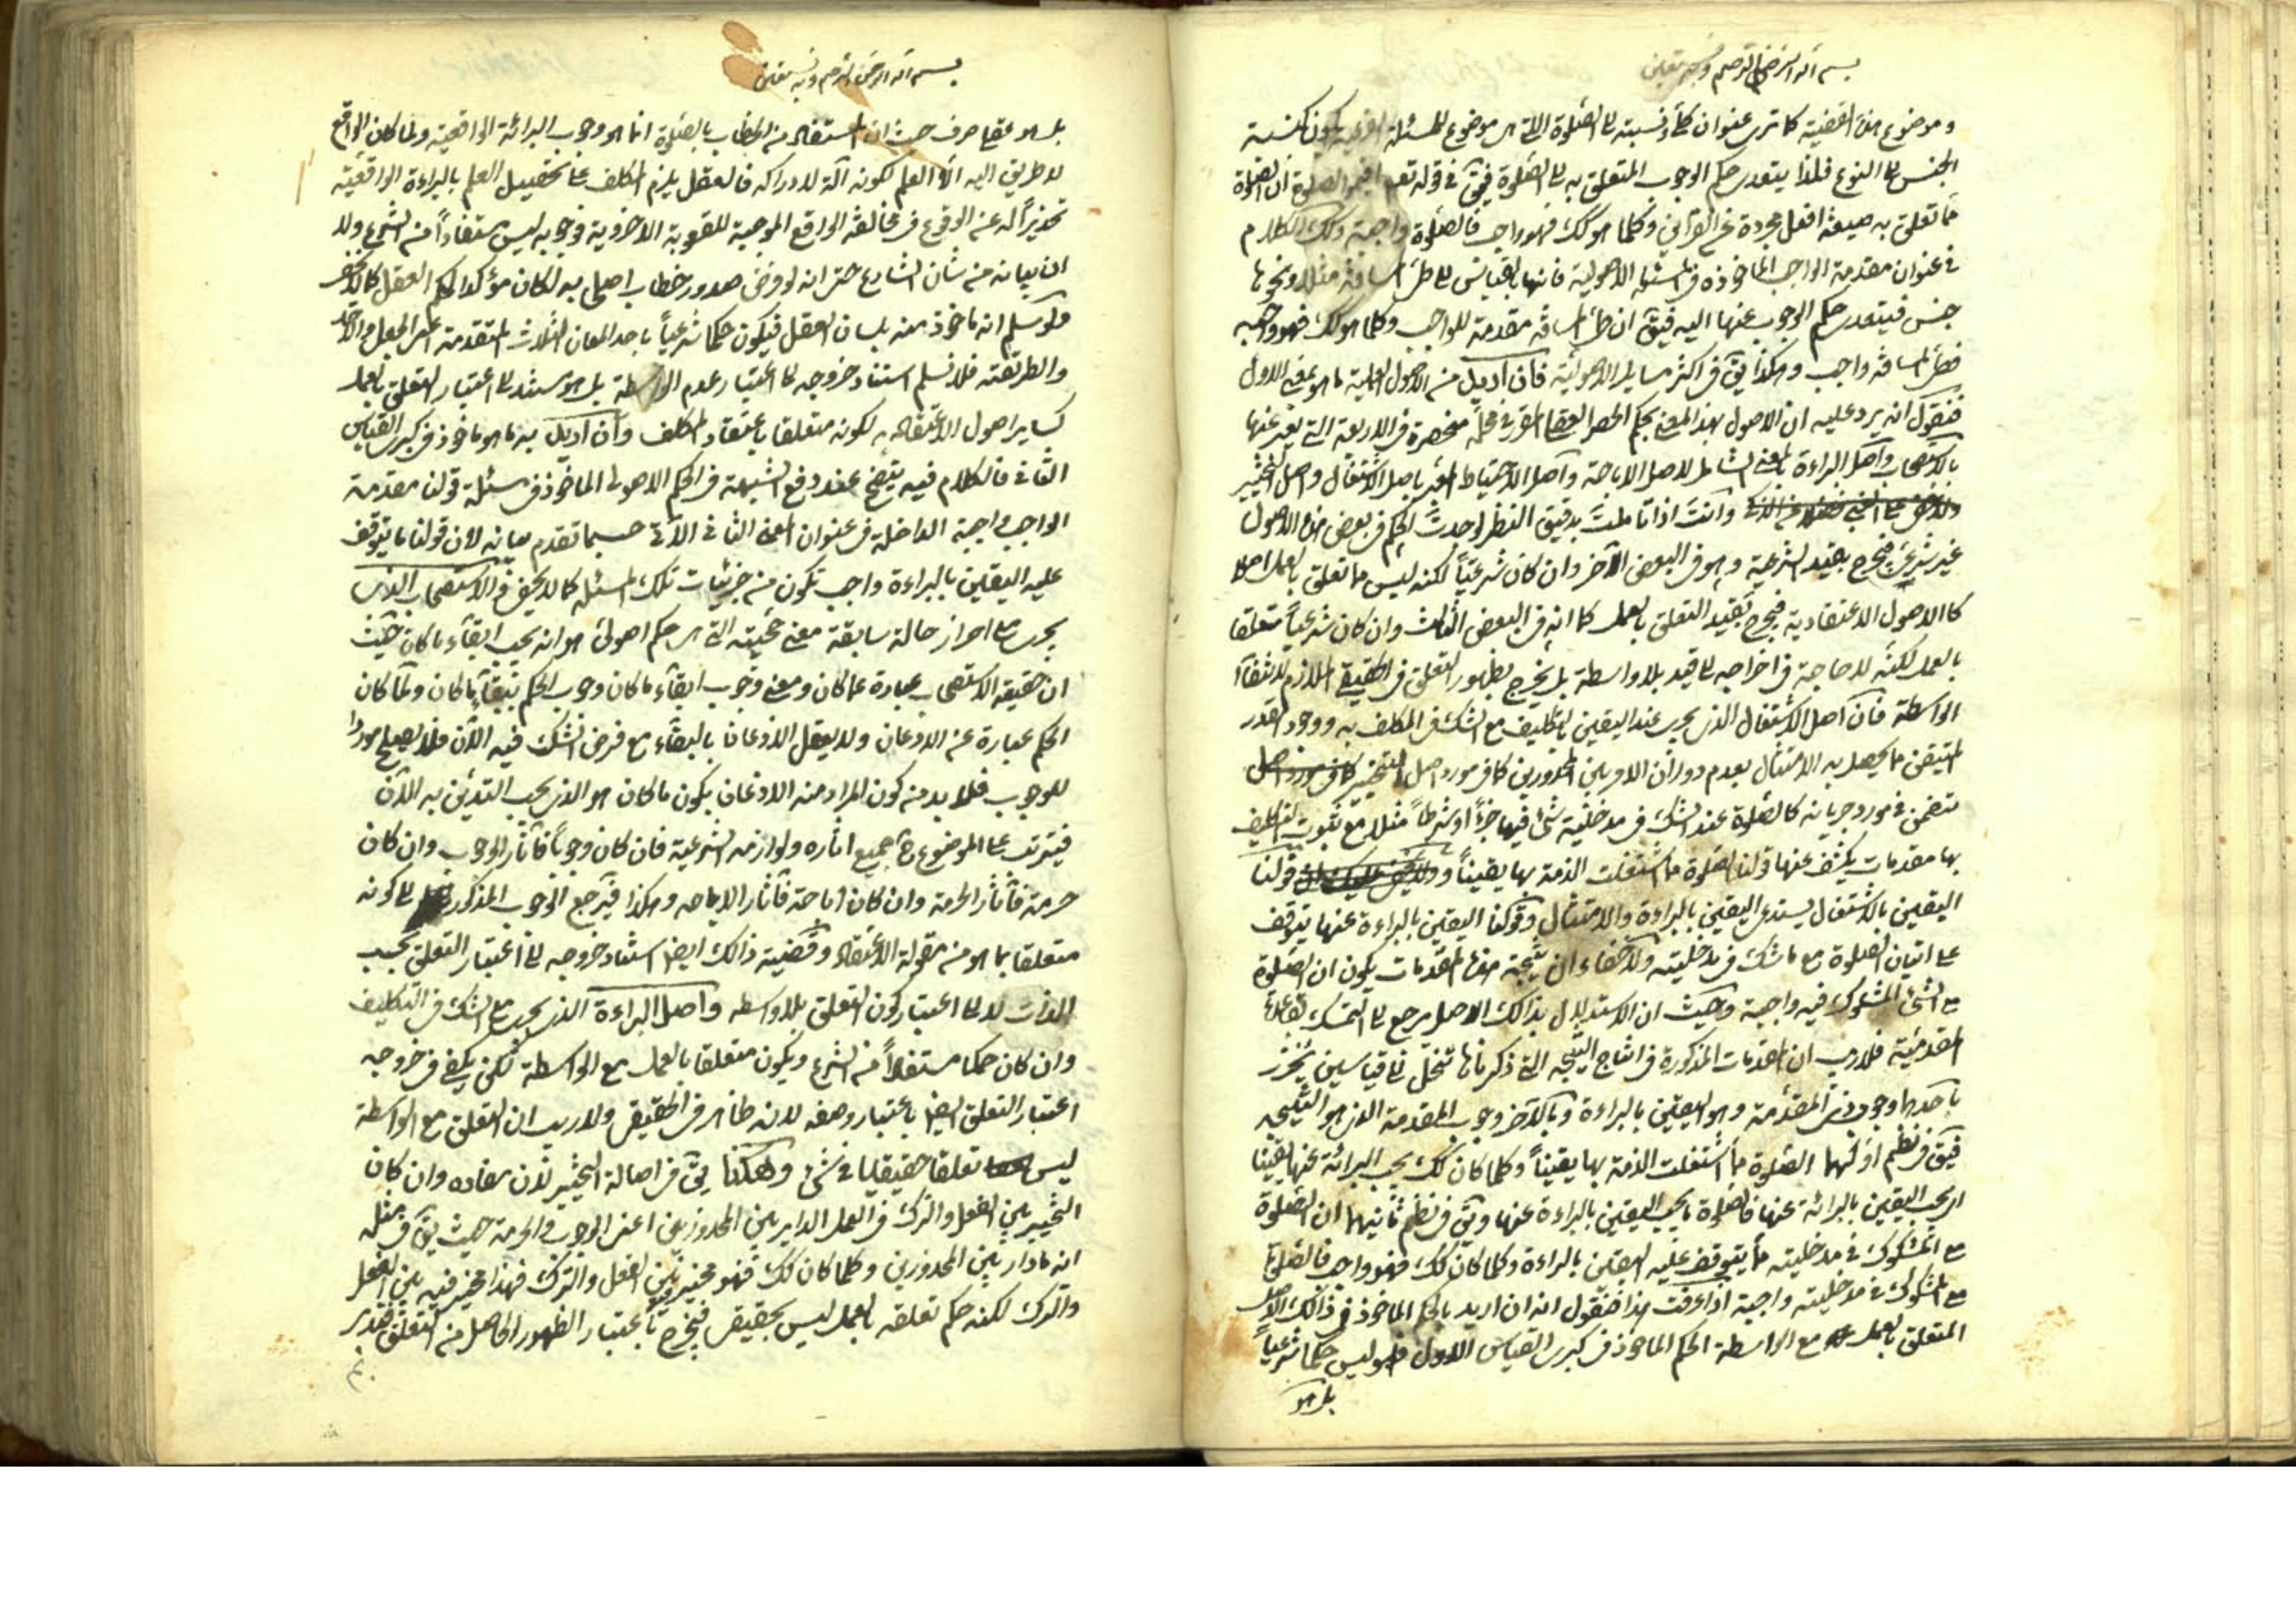 بسم الله الرحمن الرحيم وبه نستعين
وموضوع هذه القضية كما ترى عنوان كلي ونسبته الى الصلوة التي هي موضوع للمسئلة الفرعية يكون كنسبة
الجنس الى النوع فلذا يتعدى حكم الوجوب المتعلق به الى الصلوة فيق في قوله تعم اقيموا الصلوة ان الصلوة
مما تعلق به صيغة افعل مجردة عن القرآئن وكلما هو كك فهو واجب فالصلوة واجبة وكك الكلام
في عنوان مقدمة الواجب الماخوذه في المسئلة الاصولية فانها بالقياس الى طى المسافة مثلا ونحوها
جنس فيتعدى حكم الوجوب عنها اليه فيق ان طى المسافة مقدمة للواجب وكلما هو كك فهو واجب
فطى المسافة واجب وهكذا يق في اكثر مسايل الاصولية فان اريد من الاصول العملية ما هو بمعنى الاول
فنقول انه يرد عليه ان الاصول بهذا المعنى بحكم الحصر العقلى المقرر في محله منحصرة في الاربعة التي يعبر عنها
بالاستصحاب واصل البراءة بالمعنى الشامل لاصل الاباحة واصل الاحتياط المعبر باصل الاشتغال واصل التخيير
وانت اذا تاملت بدقيق النظر لوجدت الحكم في بعض هذه الاصول
غير شرعى فيخرج بقيد الشرعية وهو في البعض الآخر وان كان شرعيا لكنه ليس مما تعلق بالعمل اصلا
كالاصول الاعتقادية فيخرج بقيد التعلق بالعمل كما انه في البعض الثالث وان كان شرعيا متعلقا
بالعمل لكنه لا حاجة في اخراجه الى قيد بلا واسطة بل يخرج بظهور التعلق في الحقيقى الملازم لانتفاء
الواسطة فان اصل الاشتغال الذي يجرى عند اليقين بالتكليف مع الشك في المكلف به ووجود القدر
المتيقن مما يحصل به الامتثال بعدم دوران الامر بين المحذورين كما في مورد اصل التخيير
يتضمن في مورد جريانه كالصلوة عند الشك في مدخلية شئ فيها جزءا او شرطا مثلا مع ثبوت التكليف
بها مقدمات يكشف عنها قولنا الصلوة مما اشتغلت الذمة بها يقينا و قولنا
اليقين بالاشتغال يستدعى اليقين بالبراءة والامتثال وقولنا اليقين بالبراءة عنها يتوقف
على اتيان الصلوة مع ما شك في مدخليته ولا خفاء ان نتيجة هذه المقدمات يكون ان الصلوة
مع الشئ المشكوك فيه واجبة وحيث ان الاستدلال بذالك الاصل يرجع الى التمسك بقاعدة
المقدمية فلا ريب ان المقدمات المذكورة في انتاج النتيجة التي ذكرناها تنحل الى قياسين يحرز
باحدهما وجوب ذى المقدمة وهو اليقين بالبراءة وبالآخر وجوب المقدمة الذي هو النتيجه
فيق في نظم اولهما الصلوة مما اشتغلت الذمة بها يقينا وكلما كان كك يجب البرائة عنها يقينا
اى يجب اليقين بالبرائة عنها فالصلوة ما يجب اليقين بالبراءة عنها ويق في نظم ثانيهما ان الصلوة
مع المشكوك في مدخليته مما يتوقف عليه اليقين بالبراءة وكلما كان كك فهو واجب فالصلوة
مع المشكوك في مدخليته واجبة اذا عرفت هذا فنقول انه ان اريد بالحكم الماخوذ في ذالك الاصل
المتعلق بالعمل مع الواسطة الحكم الماخوذ في كبرى القياس الاول فهو ليس حكما شرعيا
بل هو
بسم الله الرحمن الرحيم وبه نستعين
بل هو عقلي صرف حيث ان المستفاد من الخطاب بالصلوة انما هو وجوب البرائة الواقعية ولما كان الواقع
لا طريق اليه الا العلم لكونه آلة لادراكه فالعقل يلزم المكلف على تحصيل العلم بالبراءة الواقعية
تحذيرا له عن الوقوع في مخالفة الواقع الموجبة للعقوبة الاخروية فوجوبه ليس مستفادا من الشرع ولا
ان بيانه من شان الشارع حتى انه لو فرض صدور خطاب اصلى به لكان مؤكدا لحكم العقل كما لا يخفى
ولو سلم انه ماخوذ منه بلسان العقل فيكون حكما شرعيا باحد المعان الثلاث المتقدمة اعنى الجعل والاخذ
والطريقه فلا نسلم استناد خروجه الى اعتبار عدم الواسطة بل هو مستند الى اعتبار التعلق بالعمل
كساير اصول الاعتقاديه لكونه متعلقا باعتقاد المكلف وان اريد به ما هو ماخوذ في كبرى القياس
الثاني فالكلام فيه يتضح عند دفع الشبهة في الحكم الاصولى الماخوذ في مسئلة قولنا مقدمة
الواجب واجبة الداخلة في عنوان المعنى الثاني الآتى حسبما تقدم بيانه لان قولنا ما يتوقف
عليه اليقين بالبراءة واجب تكون من جزئيات تلك المسئله كما لا يخفى والاستصحاب الذى
يجرى مع احراز حالة سابقة معنى حجيته التي هي حكم اصولى هو انه يجب ابقاء ما كان حيث
ان حقيقة الاستصحاب عبارة عما كان ومعنى وجوب ابقاء ما كان وجوب الحكم ببقاء ما كان ولما كان
الحكم عبارة عن الاذعان ولا يعقل الاذعان بالبقاء مع فرض الشك فيه الآن فلا يصلح موردا
للوجوب فلا بد من كون المراد منه الاذعان بكون ما كان هو الذى يجب التدين به الآن
فيترتب على الموضوع ح جميع اثاره ولوازمه الشرعية فان كان وجوبا فآثار الوجوب وان كان
حرمة فآثار الحرمة وان كان اباحة فآثار الاباحه وهكذا فيرجع الوجوب المذكور الى كونه
متعلقا بما هو من مقولة الاعتقاد وقضية ذالك ايضا استناد خروجه الى اعتبار التعلق بحسب
الذات لا الى اعتبار كون التعلق بلا واسطه واصل البراءة الذى يجرى مع الشك في التكليف
وان كان حكما مستفادا من الشرع ويكون متعلقا بالعمل مع الواسطة لكن يكفى في خروجه
اعتبار التعلق ايضا باعتبار وصفه لانه ظاهر في الحقيقى ولا ريب ان التعلق مع الواسطة
ليس تعلقا حقيقيا في شئ وهكذا يق في اصالة التخيير لان مفاده وان كان
التخيير بين الفعل والترك في العمل الداير بين المحذورين اعنى الوجوب والحرمة حيث يق في مثله
انه ما دار بين المحذورين وكلما كان كك فهو مخير بين الفعل والترك فهذا مخير فيه بين الفعل
والترك لكنه حكم تعلقه بالعمل ليس بحقيقى فيخرج باعتبار الظهور الحاصل من التعلق فتدبر